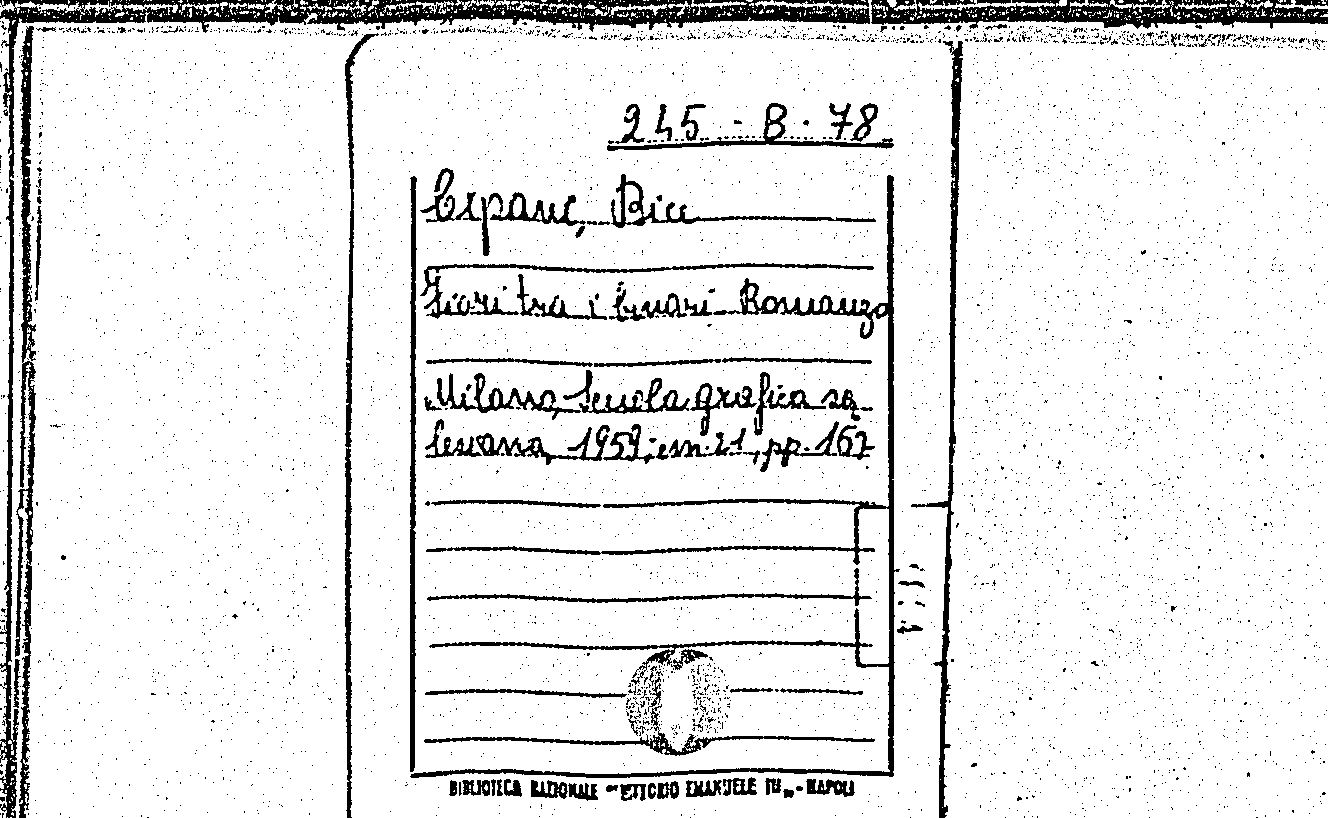 245 - B. 78
Bice
Fiori tra i binari - Romanzo
Milano, Scuola grafica sa
lesiana, 1959; in. 21, pp. 167
BIBLIOTECA NAZIONALE "VITTORIO EMANUELE III" - NAPOLI